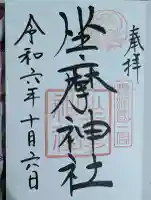 奉拝
坐摩神社
令和六年十月六日